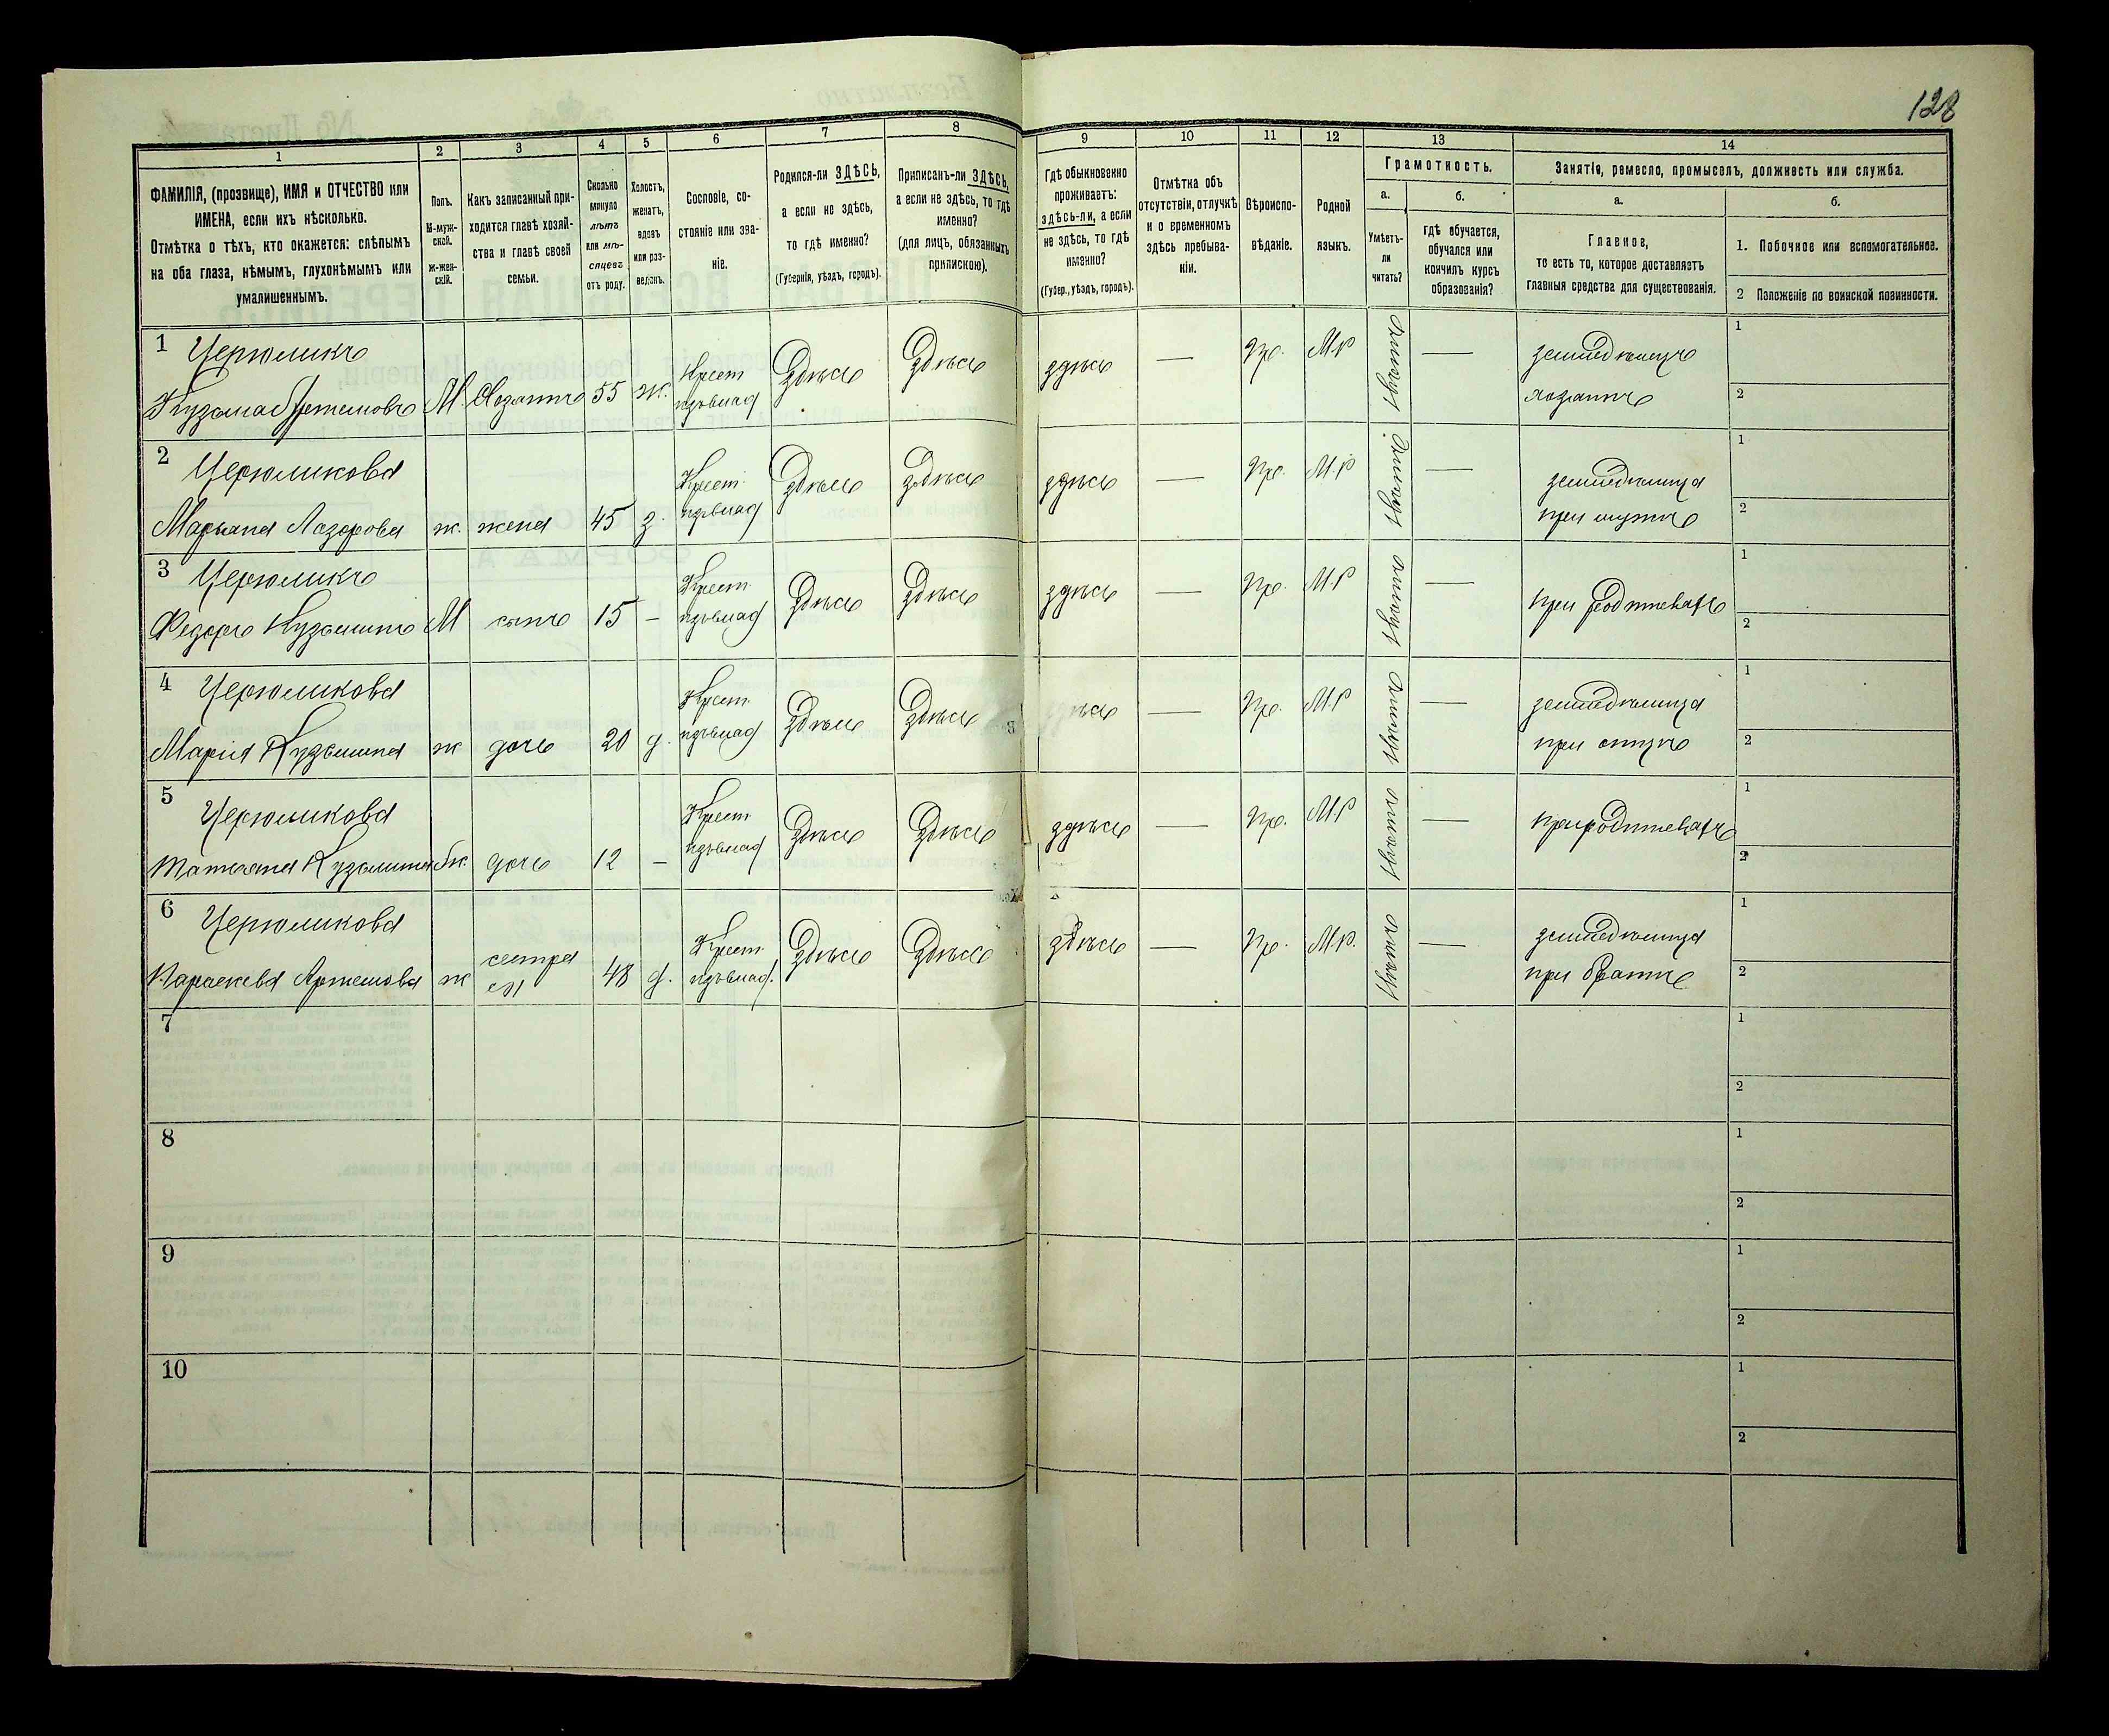 128
1 2 3 4 5 6 7 8 9 10 11 12 13 14
ФАМИЛІЯ, (прозвище), ИМЯ и ОТЧЕСТВО или
ИМЕНА, если ихъ нѣсколько.
Отмѣтка о тѣхъ, кто окажется: слѣпымъ
на оба глаза, нѣмымъ, глухонѣмымъ или
умалишеннымъ.
Полъ.
М-муж-
ской.
ж-жен-
скій.
Какъ записанный при-
ходится главѣ хозяй-
ства и главѣ своей
семьи.
Сколько
минуло
лѣтъ
или мѣ-
сяцевъ
отъ роду.
Холостъ,
женатъ,
вдовъ
или раз-
веденъ.
Сословіе, со-
стояніе или зва-
ніе.
Родился-ли ЗДѢСЬ,
а если не здѣсь,
то гдѣ именно?
(Губернія, уѣздъ, городъ).
Приписанъ-ли ЗДѢСЬ,
а если не здѣсь, то гдѣ
именно?
(для лицъ, обязанныхъ
припискою).
Гдѣ обыкновенно
проживаетъ:
здѣсь-ли, а если
не здѣсь, то гдѣ
именно?
(Губер., уѣздъ, городъ).
Отмѣтка объ
отсутствіи, отлучкѣ
и о временномъ
здѣсь пребыва-
ніи.
Вѣроиспо-
вѣданіе.
Родной
языкъ.
Грамотность.
а.
Умѣетъ-
ли
читать?
б.
гдѣ обучается,
обучался или
кончилъ курсъ
образованія?
Занятіе, ремесло, промыселъ, должность или служба.
а.
Главное,
то есть то, которое доставляетъ
главныя средства для существованія.
б.
1. Побочное или вспомогательное.
2 Положеніе по воинской повинности.
1 Черюмикъ Крест Здѣсь Здѣсь здѣсь — Пр. М.р — земледѣлецъ 1
Кузьма Артемовъ М. Хозяинъ 55 ж. хозяинъ 2
2 Черюмикова Крест Здѣсь Здѣсь здѣсь — Пр. М.р — земледѣлица 1
Марьяна Лазорова ж. жена 45 з. при мужѣ 2
3 Черюмикъ Крест Здѣсь Здѣсь здѣсь — Пр. М.р — 1
Федоръ Кузьминъ М сынъ 15 — при родителяхъ 2
4 Черюмикова Крест Здѣсь Здѣсь здѣсь — Пр. М.р — земледѣлица 1
Марія Кузьмина ж дочь 20 д. при отцѣ 2
5 Черюмикова Крест Здѣсь Здѣсь здѣсь — Пр. М.р — при родителяхъ 1
Татьяна Кузьмина ж. дочь 12 — 2
6 Черюмикова сестра Крест Здѣсь Здѣсь здѣсь — Пр. М.р. — земледѣлица 1
Параскева Артемова ж 48 д. при братѣ 2
7 1
2
8 1
2
9 1
2
10 1
2